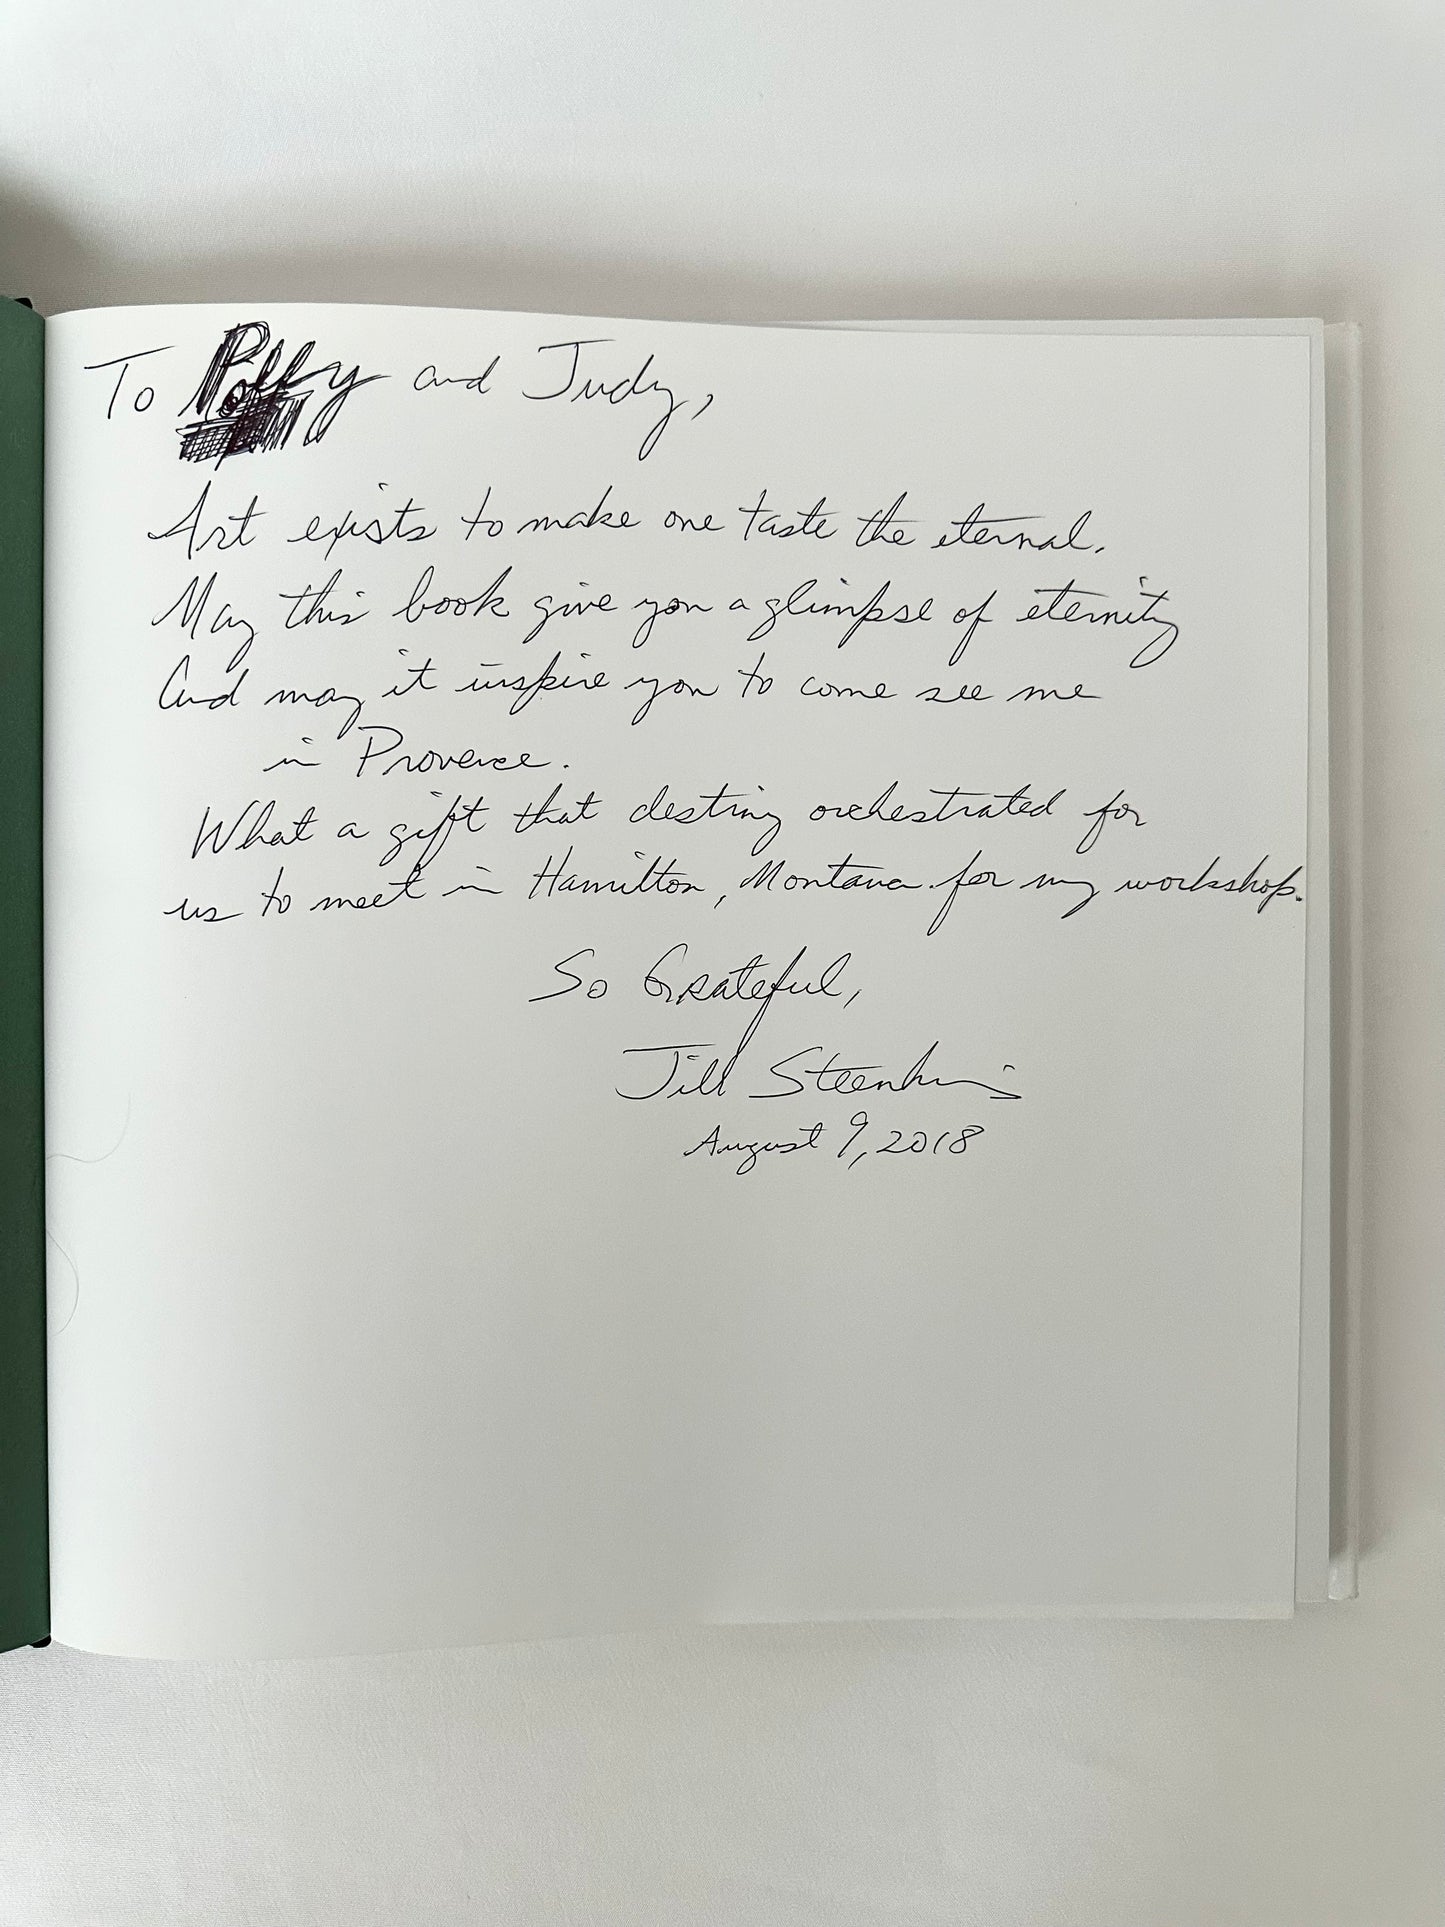 To Polly and Judy,
Art exists to make one taste the eternal.
May this book give you a glimpse of eternity
And may it inspire you to come see me
in Provence.
What a gift that destiny orchestrated for
us to meet in Hamilton, Montana for my workshop.
So Grateful,
Jill
August 9, 2018